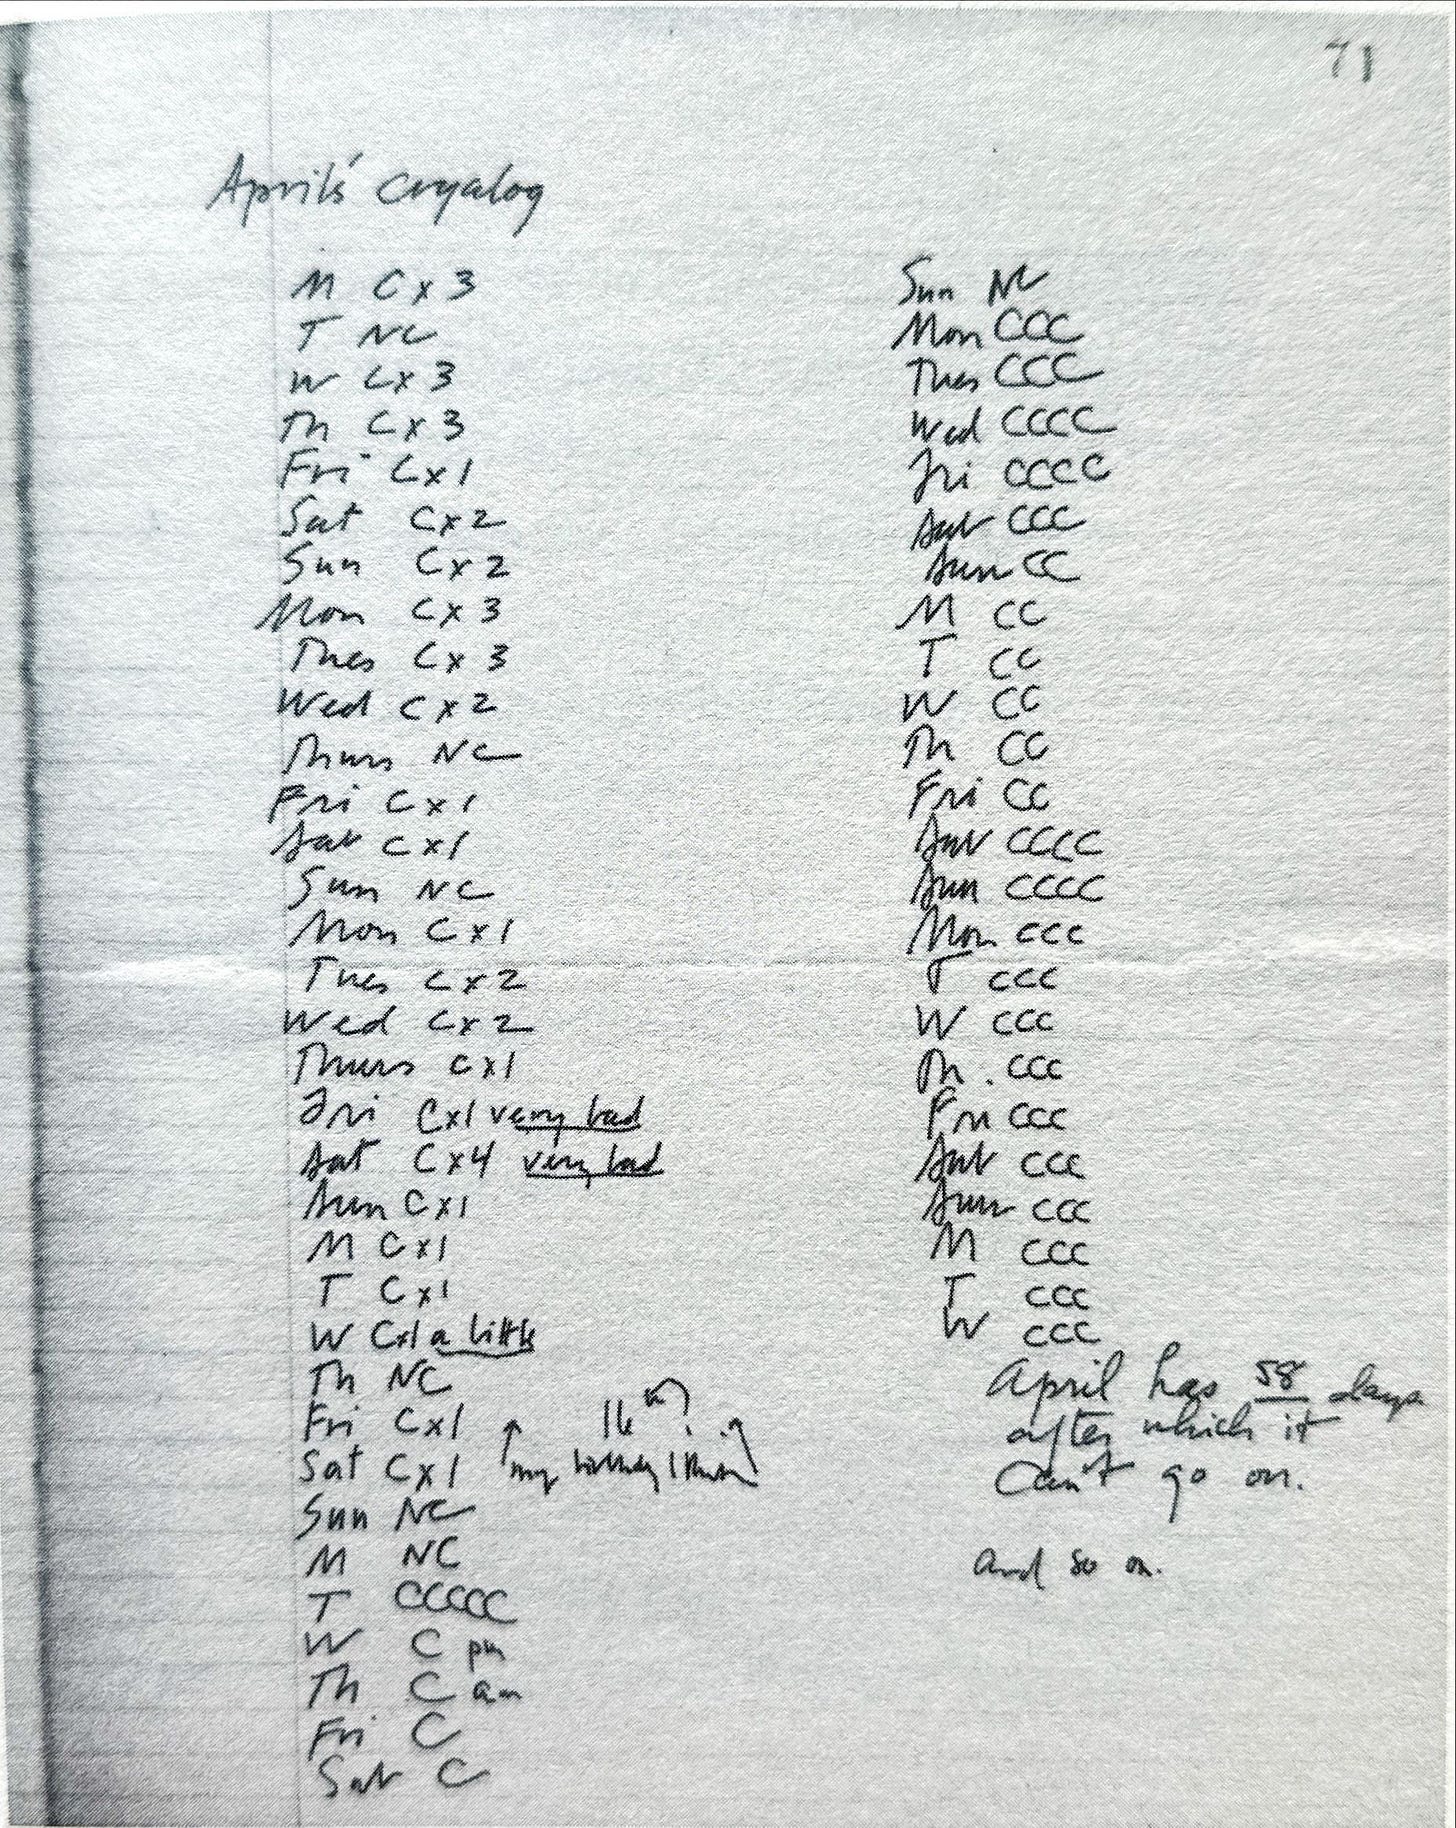 71
April's cryalog
M C x 3
T NC
W C x 3
Th C x 3
Fri C x 1
Sat C x 2
Sun C x 2
Mon C x 3
Tues C x 3
Wed C x 2
Thurs NC
Fri C x 1
Sat C x 1
Sun NC
Mon C x 1
Tues C x 2
Wed C x 2
Thurs C x 1
Fri C x 1 very bad
Sat C x 4 very bad
Sun C x 1
M C x 1
T C x 1
W C x 1 a little
Th NC
Fri C x 1 16
Sat C x 1 my I think
Sun NC
M NC
T CCCCC
W C pm
Th C am
Fri C
Sat C
Sun NC
Mon CCC
Tues CCC
Wed CCCC
Fri CCCC
Sat CCC
Sun CC
M CC
T CC
W CC
Th CC
Fri CC
Sat CCCC
Sun CCCC
Mon CCC
T CCC
W CCC
Th. CCC
Fri CCC
Sat CCC
Sun CCC
M CCC
T CCC
W CCC
April has 58 days
after which it
can't go on.
and so on.